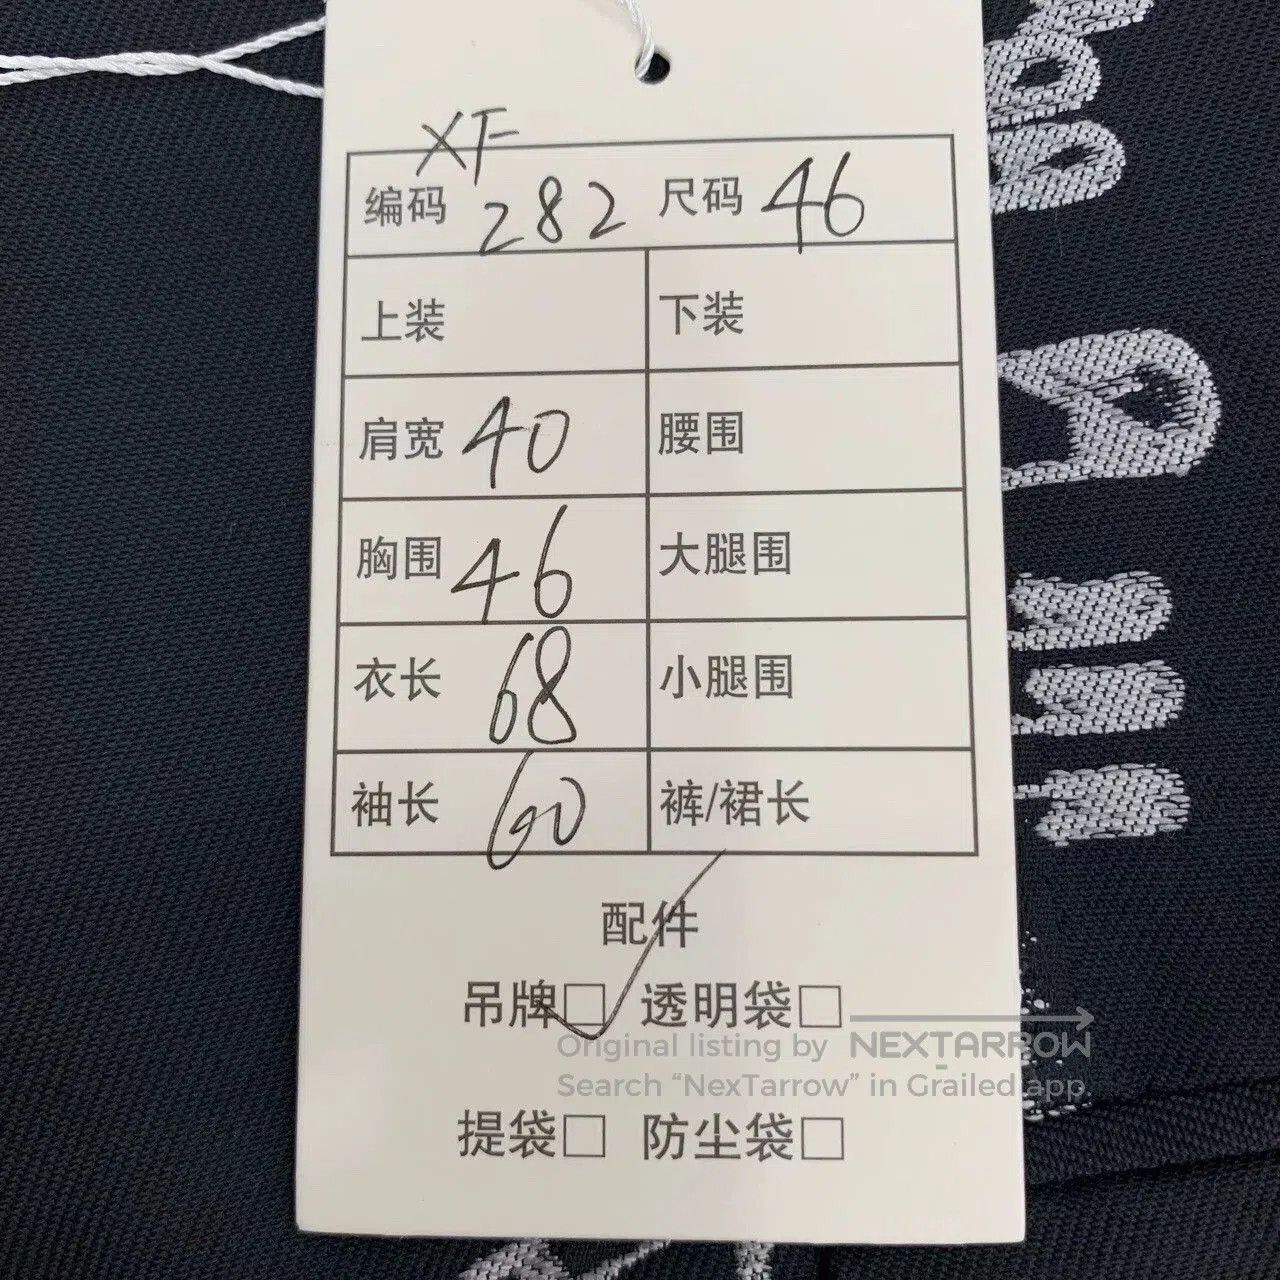 XF
编码 282 尺码 46
上装 下装
肩宽 40 腰围
胸围 46 大腿围
衣长 68 小腿围
袖长 60 裤/裙长
配件
吊牌□ 透明袋□
Original listing by NEXTARROW
Search “NexTarrow” in Grailed app.
提袋□ 防尘袋□